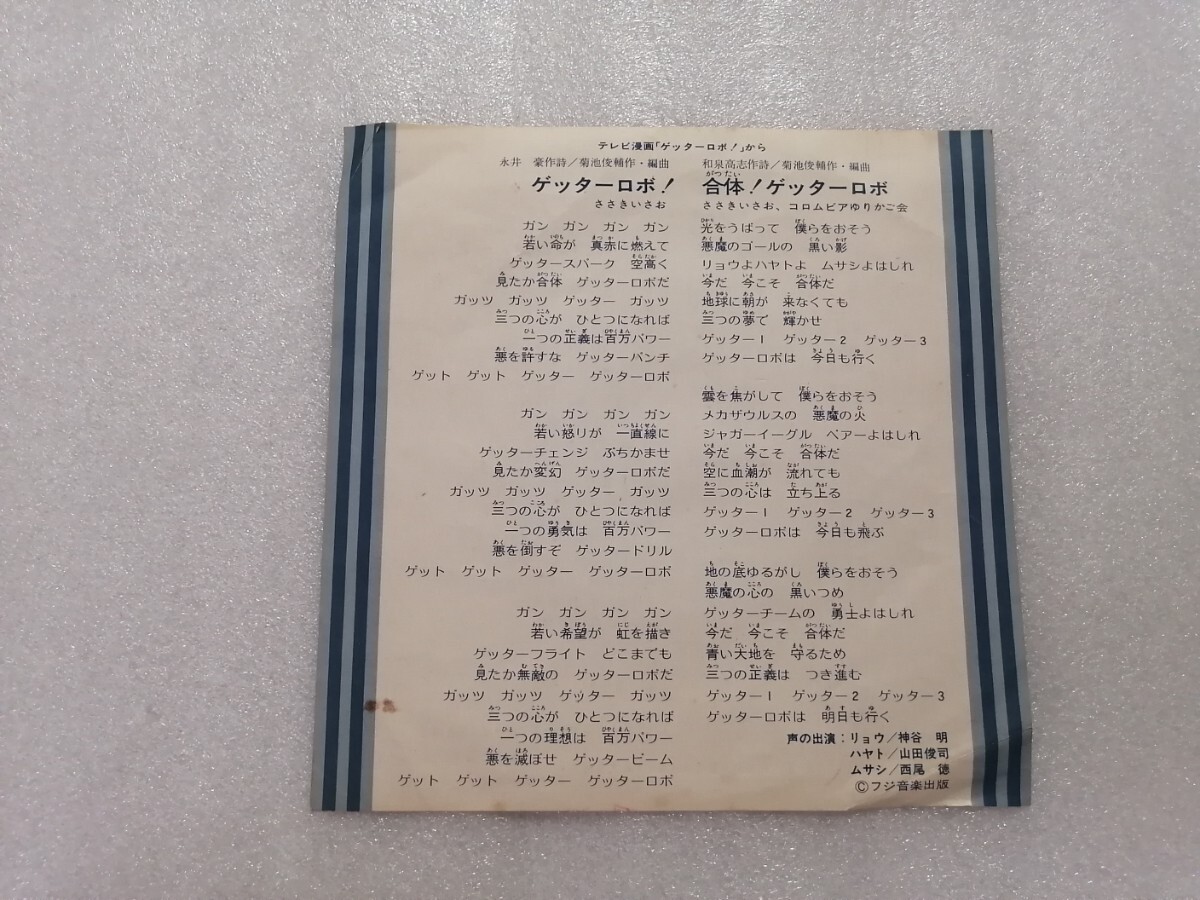 テレビ漫画「ゲッターロボ！」から
永井　豪作詩／菊池俊輔作・編曲
ゲッターロボ！
ささきいさお
ガン　ガン　ガン　ガン
若い命が　真赤に燃えて
ゲッタースパーク　空高く
見たか合体　ゲッターロボだ
ガッツ　ガッツ　ゲッター　ガッツ
三つの心が　ひとつになれば
一つの正義は百万パワー
悪を許すな　ゲッターパンチ
ゲット　ゲット　ゲッター　ゲッターロボ
ガン　ガン　ガン　ガン
若い怒りが　一直線に
ゲッターチェンジ　ぶちかませ
見たか変幻　ゲッターロボだ
ガッツ　ガッツ　ゲッター　ガッツ
三つの心が　ひとつになれば
一つの勇気は　百万パワー
悪を倒すぞ　ゲッタードリル
ゲット　ゲット　ゲッター　ゲッターロボ
ガン　ガン　ガン　ガン
若い希望が　虹を描き
ゲッターフライト　どこまでも
見たか無敵の　ゲッターロボだ
ガッツ　ガッツ　ゲッター　ガッツ
三つの心が　ひとつになれば
一つの理想は　百万パワー
悪を滅ぼせ　ゲッタービーム
ゲット　ゲット　ゲッター　ゲッターロボ
和泉高志作詩／菊池俊輔作・編曲
合体！ゲッターロボ
ささきいさお、コロムビアゆりかご会
光をうばって　僕らをおそう
悪魔のゴールの　黒い影
リョウよハヤトよ　ムサシよはしれ
今だ　今こそ　合体だ
地球に朝が　来なくても
三つの夢で　輝かせ
ゲッター1　ゲッター2　ゲッター3
ゲッターロボは　今日も行く
雲を焦がして　僕らをおそう
メカザウルスの　悪魔の火
ジャガーイーグル　ベアーよはしれ
今だ　今こそ　合体だ
空に血潮が　流れても
三つの心は　立ち上る
ゲッター1　ゲッター2　ゲッター3
ゲッターロボは　今日も飛ぶ
地の底ゆるがし　僕らをおそう
悪魔の心の　黒いつめ
ゲッターチームの　勇士よはしれ
今だ　今こそ　合体だ
青い大地を　守るため
三つの正義は　つき進む
ゲッター1　ゲッター2　ゲッター3
ゲッターロボは　明日も行く
声の出演：リョウ／神谷　明
ハヤト／山田俊司
ムサシ／西尾　徳
Ⓒフジ音楽出版